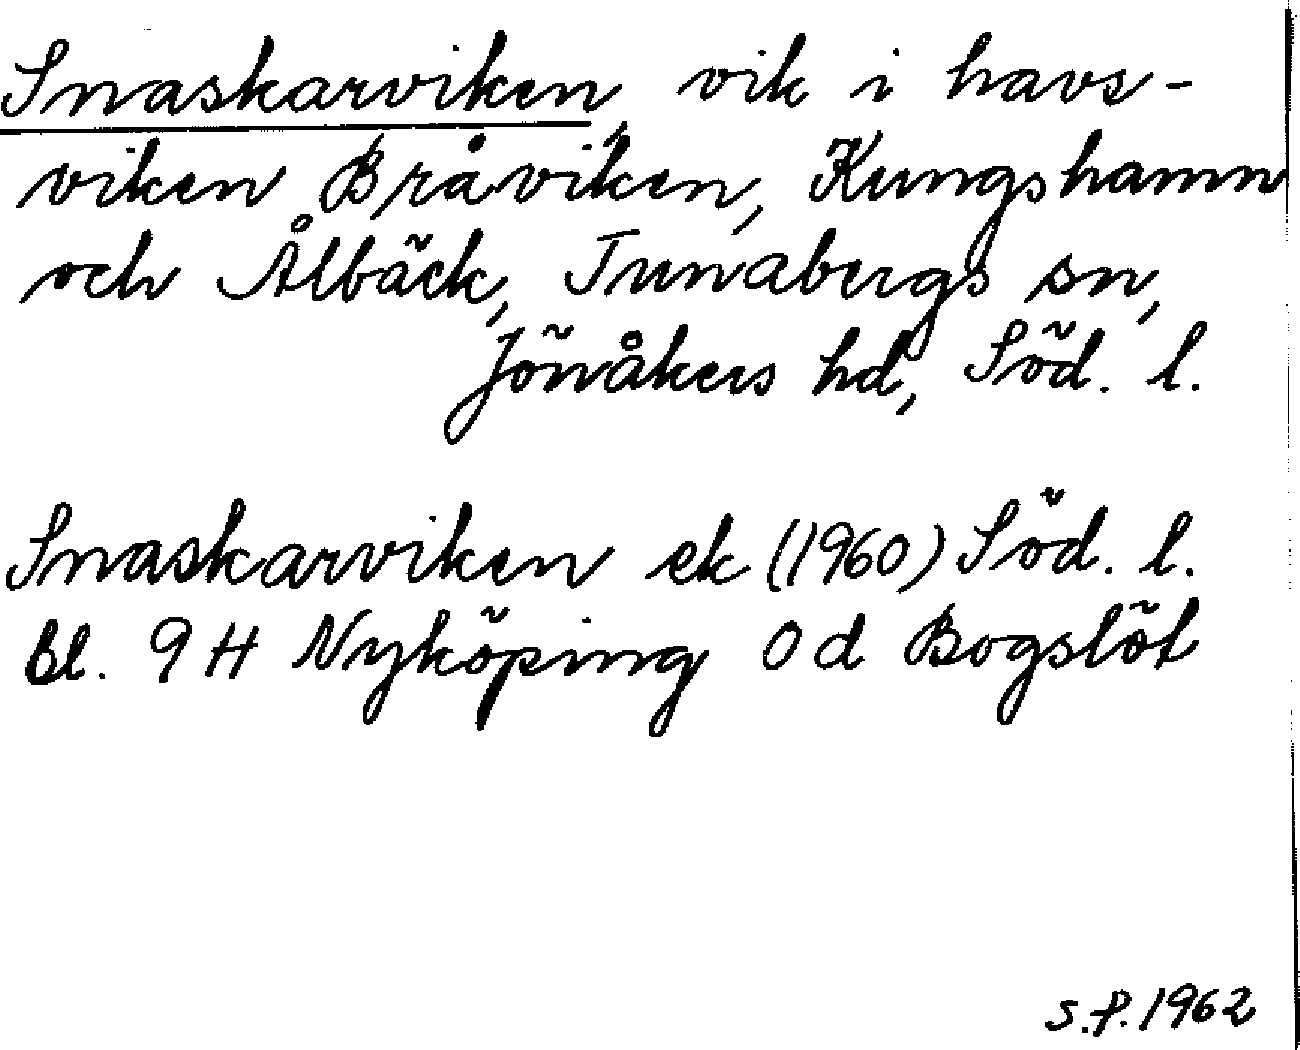 Snaskarviken, vik i havs-
viken Bråviken, Kungshamn
och Ålbäck, Tunabergs sn,
Jönåkers hd, Söd. l.
Snaskarviken ek (1960) Söd. l.
Bl. 9 H Nyköping 0 d Bogslöt
S.P. 1962